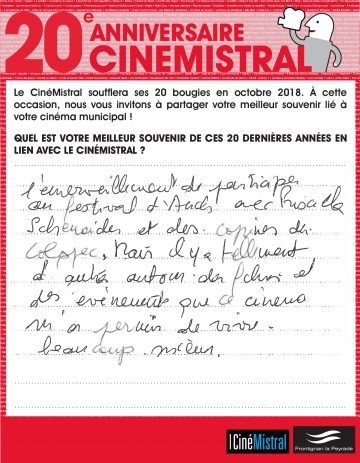 20e ANNIVERSAIRE
CINEMISTRAL
Le CinéMistral soufflera ses 20 bougies en octobre 2018. À cette
occasion, nous vous invitons à partager votre meilleur souvenir lié à
votre cinéma municipal !
QUEL EST VOTRE MEILLEUR SOUVENIR DE CES 20 DERNIÈRES ANNÉES EN
LIEN AVEC LE CINÉMISTRAL ?
l'émerveillement de participer
au festival d' avec
et des copines du
. Mais il y a tellement
d' autres autour des films et
des évènements que ce cinéma
m'a permis de vivre.
beaucoup.
CinéMistral
Frontignan la Peyrade